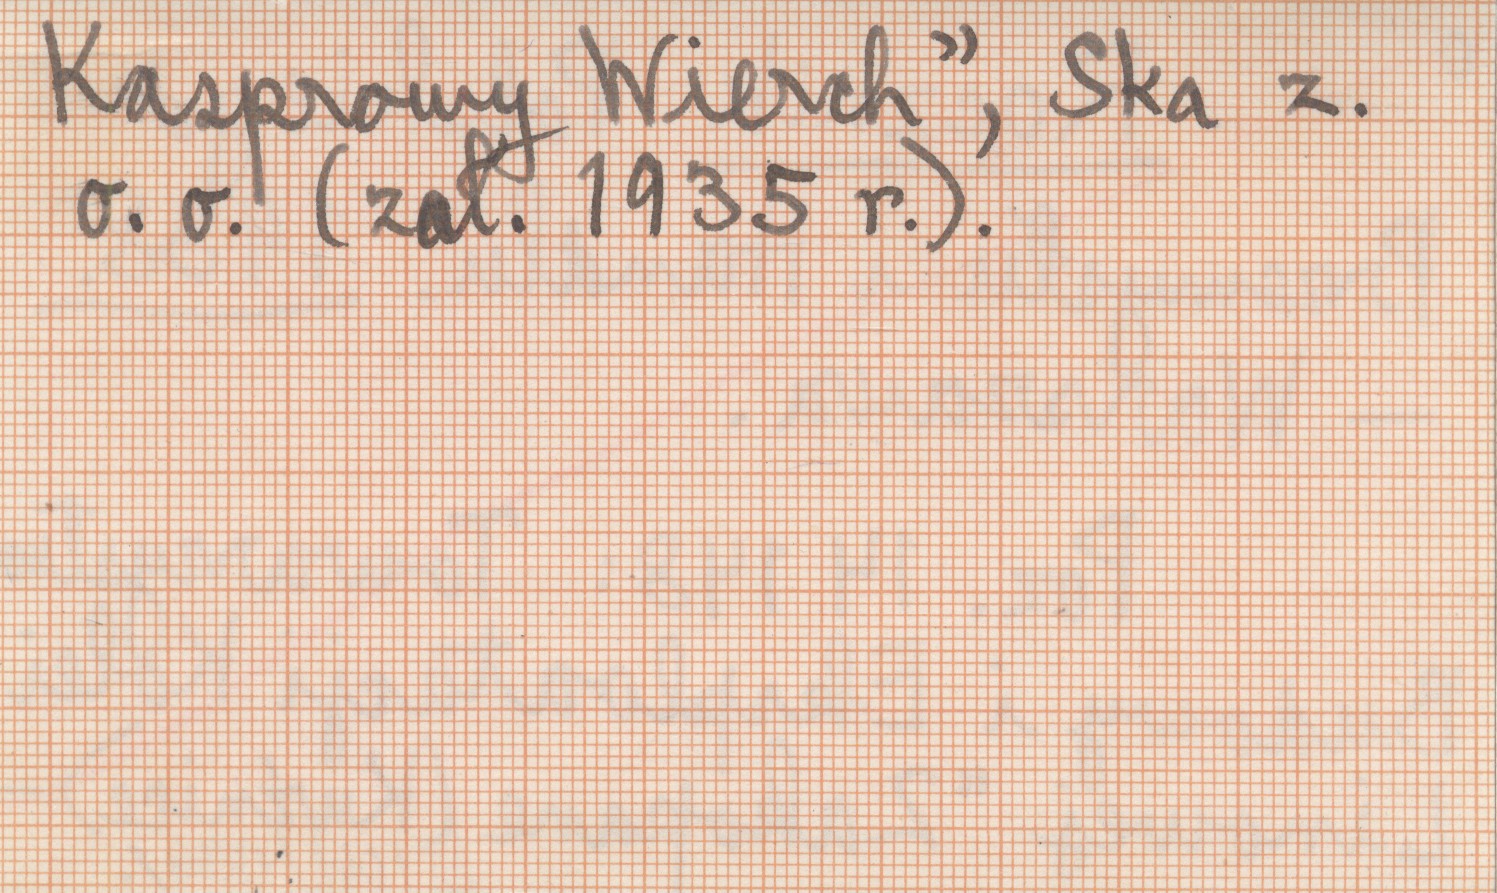 Kasprowy Wierch”, Ska z.
o. o. (zał. 1935 r.).